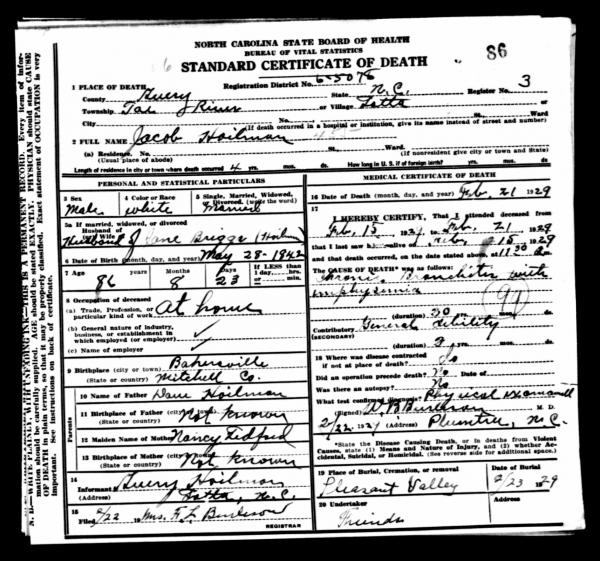 NORTH CAROLINA STATE BOARD OF HEALTH
BUREAU OF VITAL STATISTICS
STANDARD CERTIFICATE OF DEATH
86
1 PLACE OF DEATH
Registration District No. 6-5076
County Avery State N.C. Register No. 3
Township Toe River or Village or
City No. St., Ward
(If death occurred in a hospital or institution, give its name instead of street and number)
2 FULL NAME Jacob Hoilman
(a) Residence. No. St., Ward.
(Usual place of abode) (If nonresident give city or town and State)
Length of residence in city or town where death occurred 4 yrs. mos. ds. How long in U. S. if of foreign birth? yrs. mos. ds.
PERSONAL AND STATISTICAL PARTICULARS
3 Sex 4 Color or Race 5 Single, Married, Widowed, Divorced, (write the word)
Male white Married
5a If married, widowed, or divorced
Husband of
(or) Wife of
Jane Briggs (Hoilman)
6 Date of Birth (month, day, and year) May 28-1842
7 Age 86 years 8 Months 23 Days If LESS than 1 day, hrs. or min.
8 Occupation of deceased
(a) Trade, Profession, or particular kind of work At home
(b) General nature of industry, business, or establishment in which employed (or employer)
(c) Name of employer
9 Birthplace (city or town) Bakersville
(State or country) Mitchell Co.
Parents
10 Name of Father Dave Hoilman
11 Birthplace of Father (city
(State or country) Not known
12 Maiden Name of Mother Nancy Ledford
13 Birthplace of Mother (city
(State or country) Not known
14 Informant Avery Hoilman
(Address) N.C.
15 Filed 2/22 19 Mrs. F. L. Burleson
REGISTRAR
MEDICAL CERTIFICATE OF DEATH
16 Date of Death (month, day, and year) Feb. 21 1929
17 I HEREBY CERTIFY, That I attended deceased from
Feb. 15 1929, to Feb. 21 1929
that I last saw h alive on Feb. 15 1929
and that death occurred, on the date stated above, at 11:30
The CAUSE OF DEATH* was as follows:
Chronic Bronchitis with
emphysema
(duration) 20 yrs. mos. ds.
Contributory General debility
(SECONDARY)
(duration) 2 yrs. mos. ds.
18 Where was disease contracted
if not at place of death? No
Did an operation precede death? No Date of
Was there an autopsy? No
What test confirmed diagnosis? Physical
(Signed) W B Burleson M. D.
2/22 1929 (Address) Plumtree, N.C.
*State the Disease Causing Death, or in deaths from Violent Causes, state (1) Means and Nature of Injury, and (2) whether Accidental, Suicidal, or Homicidal. (See reverse side for additional space.)
19 Place of Burial, Cremation, or removal Date of Burial
Pleasant Valley 2/23 1929
20 Undertaker Address
Friends